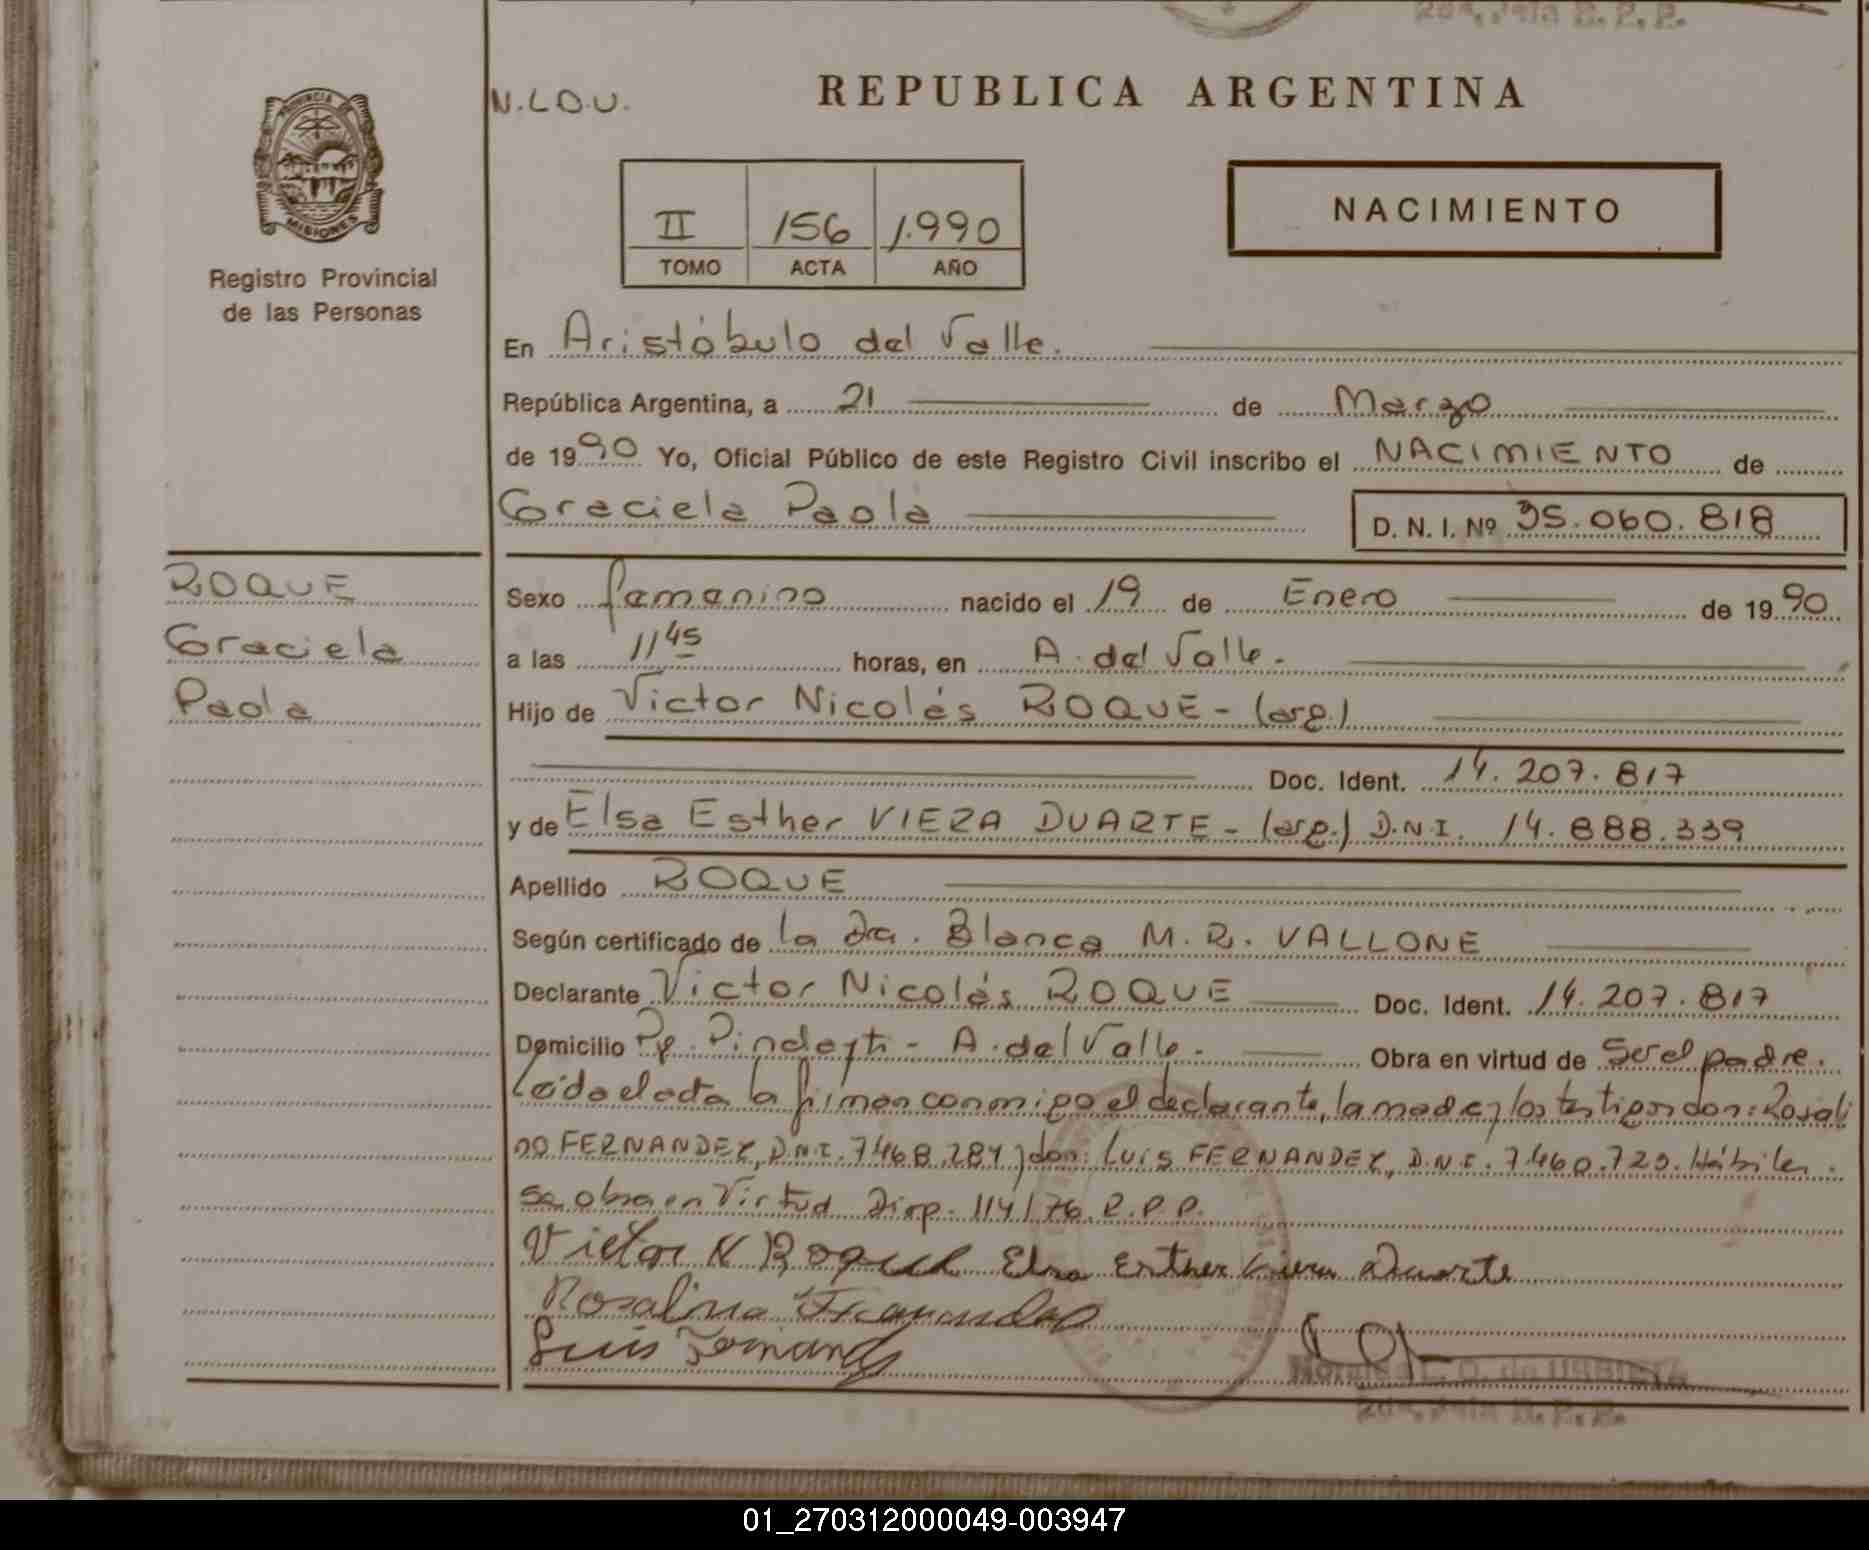 2da. Jefa R. P. P.
N.L.O.U.
REPUBLICA ARGENTINA
PROVINCIA
MISIONES
Registro Provincial
de las Personas
II 156 1.990
TOMO ACTA AÑO
NACIMIENTO
En Aristóbulo del Valle.
República Argentina, a 21 de Marzo
de 1990 Yo, Oficial Público de este Registro Civil inscribo el NACIMIENTO de
Graciela Paola
D. N. I. Nº 35.060.818
ROQUE
Graciela
Paola
Sexo femenino nacido el 19 de Enero de 1990
a las 11 45 horas, en A. del Valle.
Hijo de Victor Nicolás ROQUE - (arg.)
Doc. Ident. 14.207.817
y de Elsa Esther VIERA DUARTE - (arg.) D.N.I. 14.888.339
Apellido ROQUE
Según certificado de la Dra. Blanca M. R. VALLONE
Declarante Victor Nicolás ROQUE Doc. Ident. 14.207.817
Domicilio Pje. Pindayti - A. del Valle. Obra en virtud de Ser el padre.
Leída el acta la firman conmigo el declarante, la madre y los testigos don: Rosali
no FERNANDEZ, D.N.I. 7.468.284 y don: Luis FERNANDEZ, D.N.I. 7.460.720. Hábiles.
se obra en Virtud Disp. 114/76 R.P.P.
Victor N Roque Elsa Esther Viera Duarte
Rosalino Fernandez
Luis Fernandez
2da. Jefa R. P. P.
01_270312000049-003947